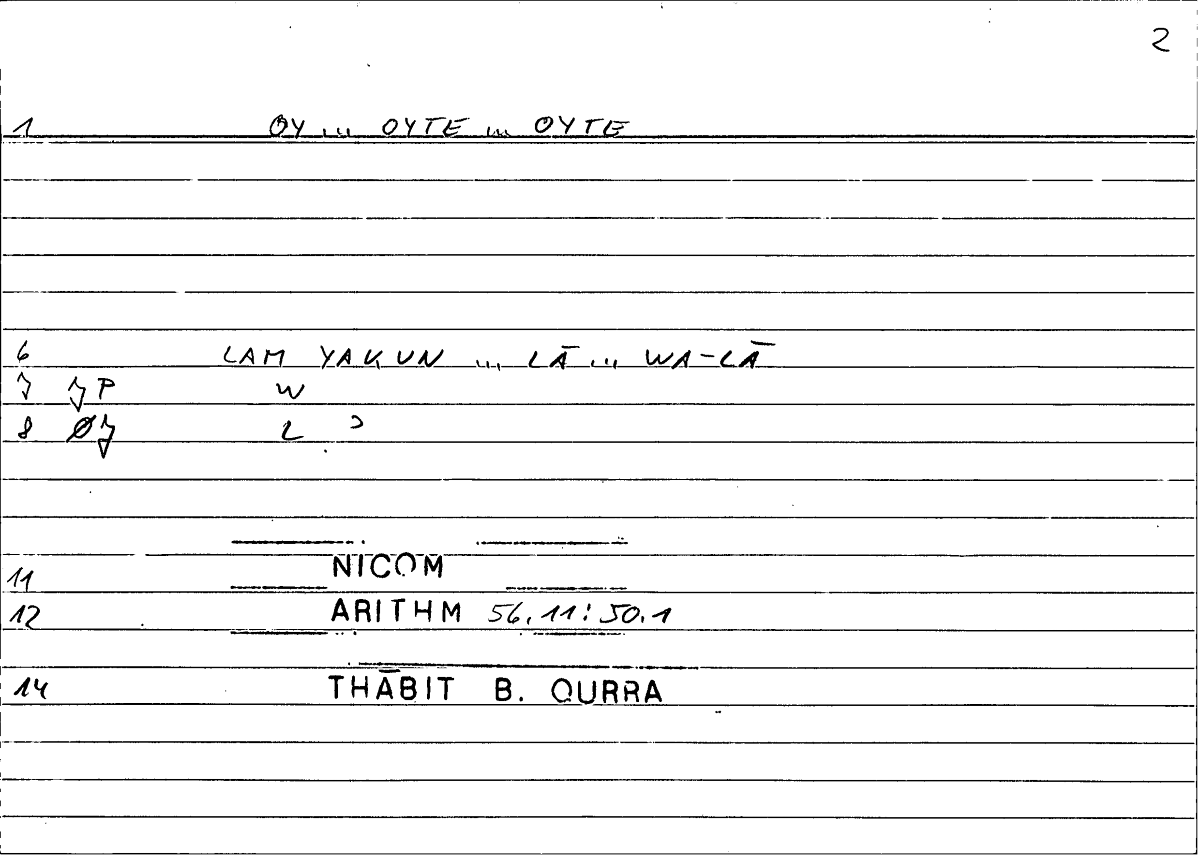 2
1 OY ... OYTE ... OYTE
6 LAM YAKUN ... LĀ ... WA-LĀ
7 P
W
8 L ʾ
11 NICOM
12 ARITHM 56.11: 50.1
14 THĀBIT B. QURRA